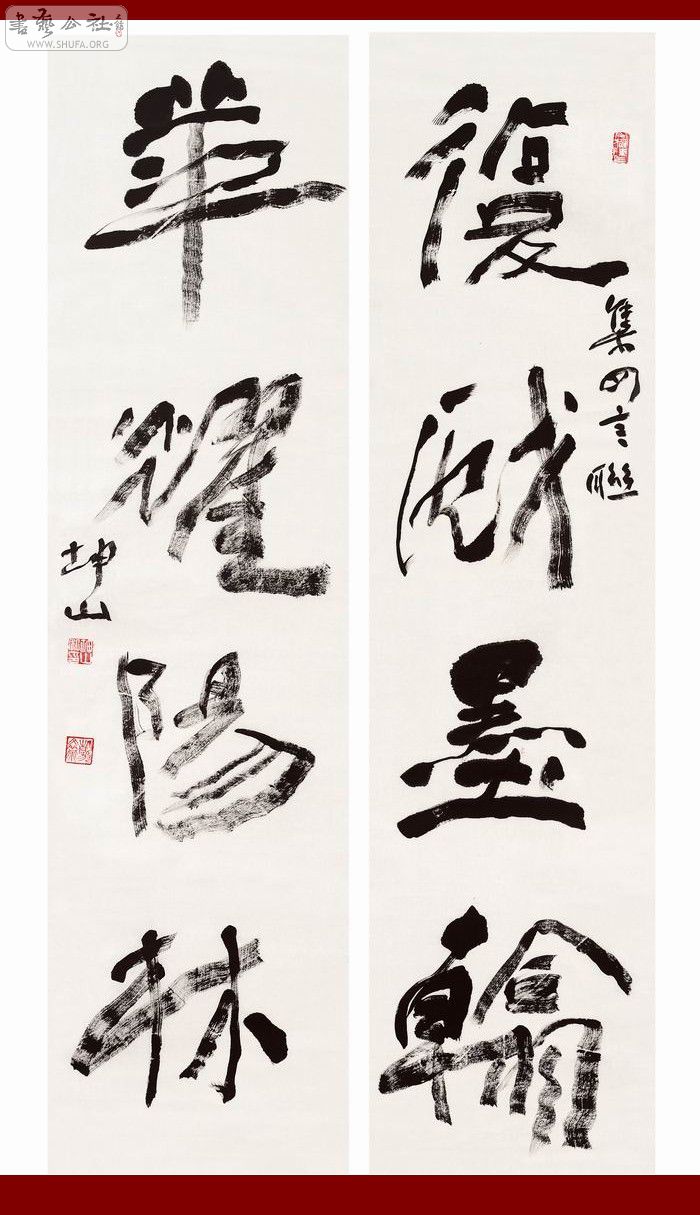 書藝公社
WWW.SHUFA.ORG
復戲墨翰
集四言聯
華耀陽林
坤山